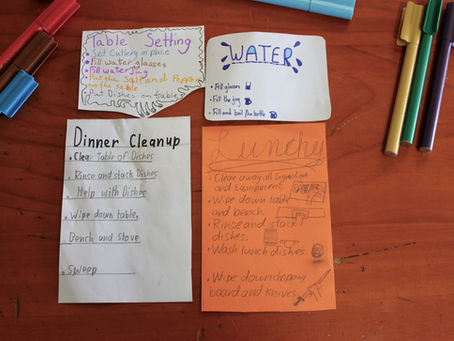 Table Setting
• Set Cutlery in place
• Fill water glasses
• Fill water Jug
• Put the Salt and Pepper
on the table
• Put Dishes on table
WATER
• Fill glasses
• Fill the jug
• Fill and boil the kettle
Dinner Cleanup
• Clear Table of Dishes
• Rinse and stack Dishes
• Help with Dishes
• Wipe down table,
Bench and Stove
• Sweep
Lunchy
• Clear away all Ingredients
and Equipment.
• Wipe down table
and bench.
• Rinse and stack
dishes.
• Wash lunch dishes.
• Wipe down chopping
board and knives